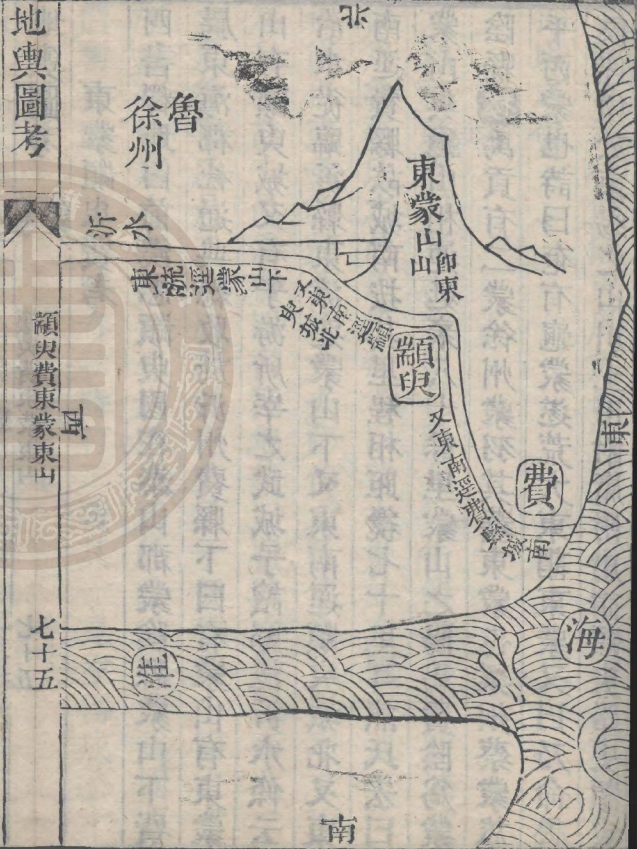 地輿圖考
顓臾費東蒙東山
七十五
北
魯
徐州
東蒙山即東山
沂水
東流逕蒙山下
又東南逕顓臾城北
顓臾
又東南逕費縣故城南
費
東
西
海
淮
南